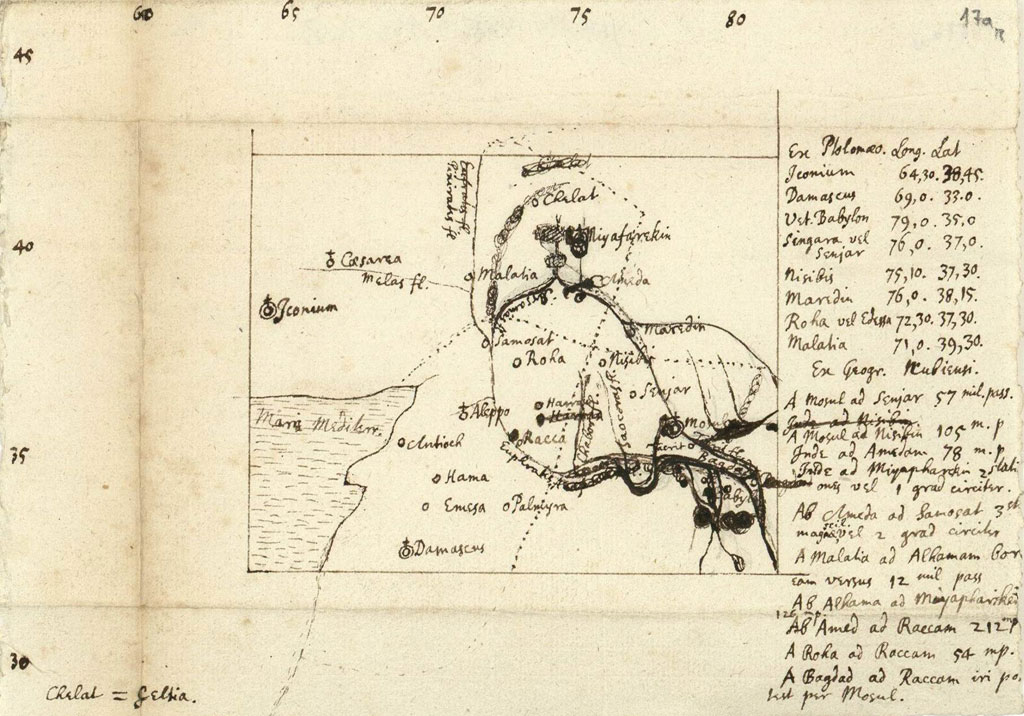 60 65 70 75 80
17a
45
40
35
30
Eufratis fl.
Chelat
Miyafarekin
Cæsarea
Melas fl.
Malatia
Ameda
Iconium
Maredin
Samosat
Roha
Nisibis
Senjar
Aleppo
Mare Mediterr.
Antioch
Racca
Chabor
Saocoras
Hama
Emesa
Palmyra
Damascus
Chelat = Gelhia.
Ex Ptolomæo. Long. Lat
Iconium 64,30. 38,45.
Damascus 69,0. 33.0.
Vet. Babylon 79,0. 35.0
Sengara vel 76,0. 37,0.
Senjar
Nisibis 75,10. 37,30.
Maredin 76,0. 38,15.
Roha vel Edessa 72,30. 37,30.
Malatia 71,0. 39,30.
Ex Geogr. Nubiensi.
A Mosul ad Senjar 57 mil. pass.
Inde ad Nisibin
A Mosul ad Nisibin 105 m. p
Inde ad Amedam 78 m. p
Inde ad Miyapharekin 2 stati
ones vel 1 grad circiter.
Ab Ameda ad Samosat 3 st
magnæ vel 2 grad circiter
A Malatia ad Alhamam bor
eam versus 12 mil pass
Ab Alhama ad Miyapharekin
126 mp
Ab Amed ad Raccam 212 mp
A Roha ad Raccam 54 mp.
A Bagdad ad Raccam iri po
test per Mosul.